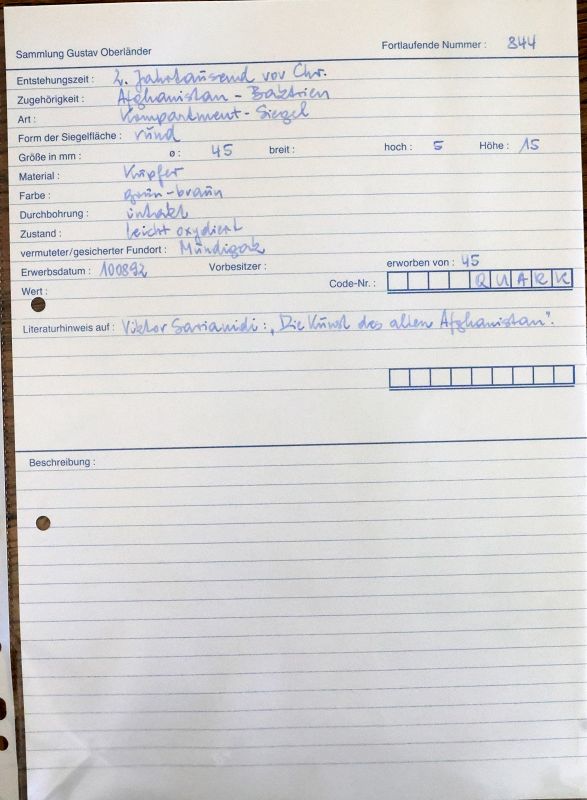 Sammlung Gustav Oberländer Fortlaufende Nummer : 344
Entstehungszeit : 2. Jahrtausend vor Chr.
Zugehörigkeit : Afghanistan - Baktrien
Art : Kompartment-Siegel
Form der Siegelfläche : rund
Größe in mm : ø : 45 breit : hoch : 5 Höhe : 15
Material : Kupfer
Farbe : grün-braun
Durchbohrung : intakt
Zustand : leicht oxydiert
vermuteter/gesicherter Fundort : Mundigak
Erwerbsdatum : 100892 Vorbesitzer : erworben von : 45
Wert : Code-Nr. : QUARK
Literaturhinweis auf : Viktor Sarianidi : „Die Kunst des alten Afghanistan".
Beschreibung :